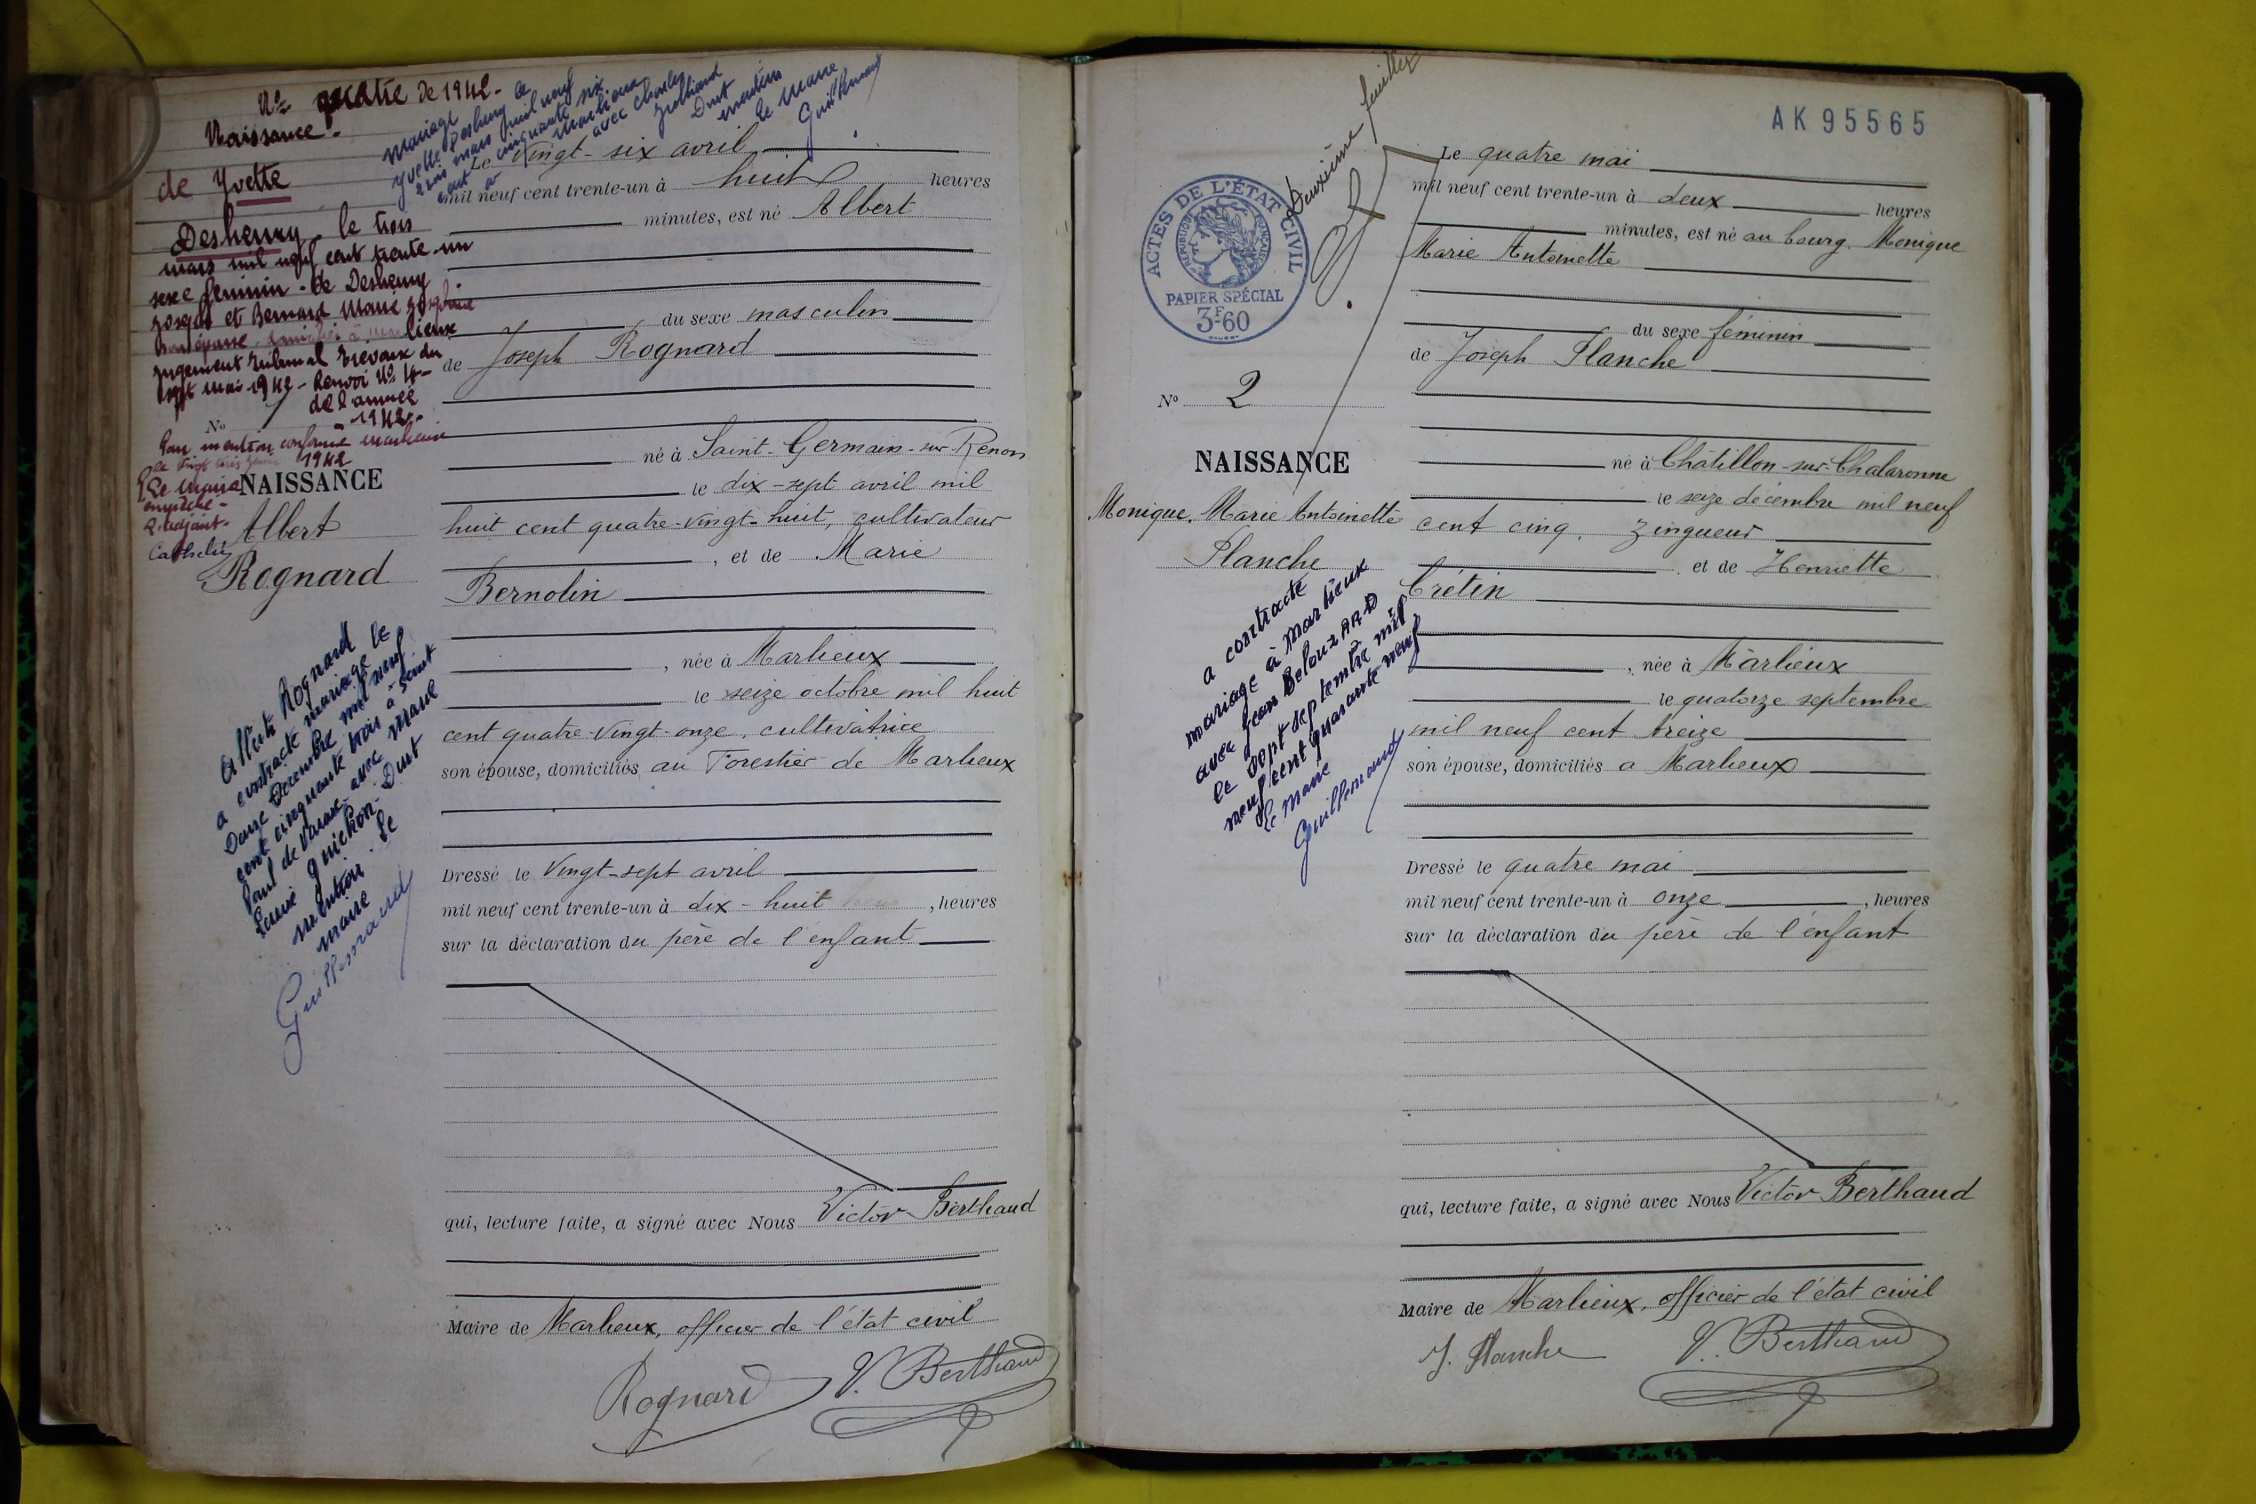 No quatre de 1942.
Naissance.
de Yvette
Desherry le trois
mars mil neuf cent trente un
sexe féminin. de Desherry
Joseph et Bernard Marie Joséphine
son épouse
jugement tribunal Trévoux du
sept mai 1942 - Renvoi No 4 -
de l'année
1942.
No 1
Pour mention conforme Marlieux
1942
Le Maire
empêché -
L'adjoint.
NAISSANCE
Albert
Rognard
Mariage
Yvette Desherry le
mars mil neuf
cent cinquante six
à Marlieux
avec Charles
Dont
mention
Le Maire
Guillemaud
Albert Rognard
a contracté mariage le
Douze Décembre mil neuf
cent cinquante trois à Saint
Paul de Varax avec Marie
Louise Guichon. Dont
mention. Le
maire
Guillemaud
Le vingt-six avril
mil neuf cent trente-un à huit heures
minutes, est né Albert
du sexe masculin
de Joseph Rognard
né à Saint-Germain-sur-Renon
le dix-sept avril mil
huit cent quatre-vingt-huit, cultivateur
, et de Marie
Bernolin
, née à Marlieux
le seize octobre mil huit
cent quatre-vingt-onze, cultivatrice
son épouse, domiciliés au Forestier de Marlieux
Dressé le vingt-sept avril
mil neuf cent trente-un à dix-huit , heures
sur la déclaration du père de l'enfant
qui, lecture faite, a signé avec Nous Victor Berthaud
Maire de Marlieux, officier de l'état civil
Rognard V. Berthaud
Deuxième feuillet
AK 95565
ACTES DE L'ÉTAT CIVIL
RÉPUBLIQUE FRANÇAISE
PAPIER SPÉCIAL
3F60
No 2
NAISSANCE
Monique, Marie Antoinette
Planche
a contracté
mariage à Marlieux
avec Jean BelouzARD
le sept septembre mil
neuf cent quarante-neuf
Le Maire
Guillemaud
Le quatre mai
mil neuf cent trente-un à deux heures
minutes, est né au bourg. Monique
Marie Antoinette
du sexe féminin
de Joseph Planche
né à Châtillon-sur-Chalaronne
le seize décembre mil neuf
cent cinq, zingueur
et de Henriette
Crétin
, née à Marlieux
le quatorze septembre
mil neuf cent treize
son épouse, domiciliés à Marlieux
Dressé le quatre mai
mil neuf cent trente-un à onze , heures
sur la déclaration du père de l'enfant
qui, lecture faite, a signé avec Nous Victor Berthaud
Maire de Marlieux, officier de l'état civil
J. Planche V. Berthaud